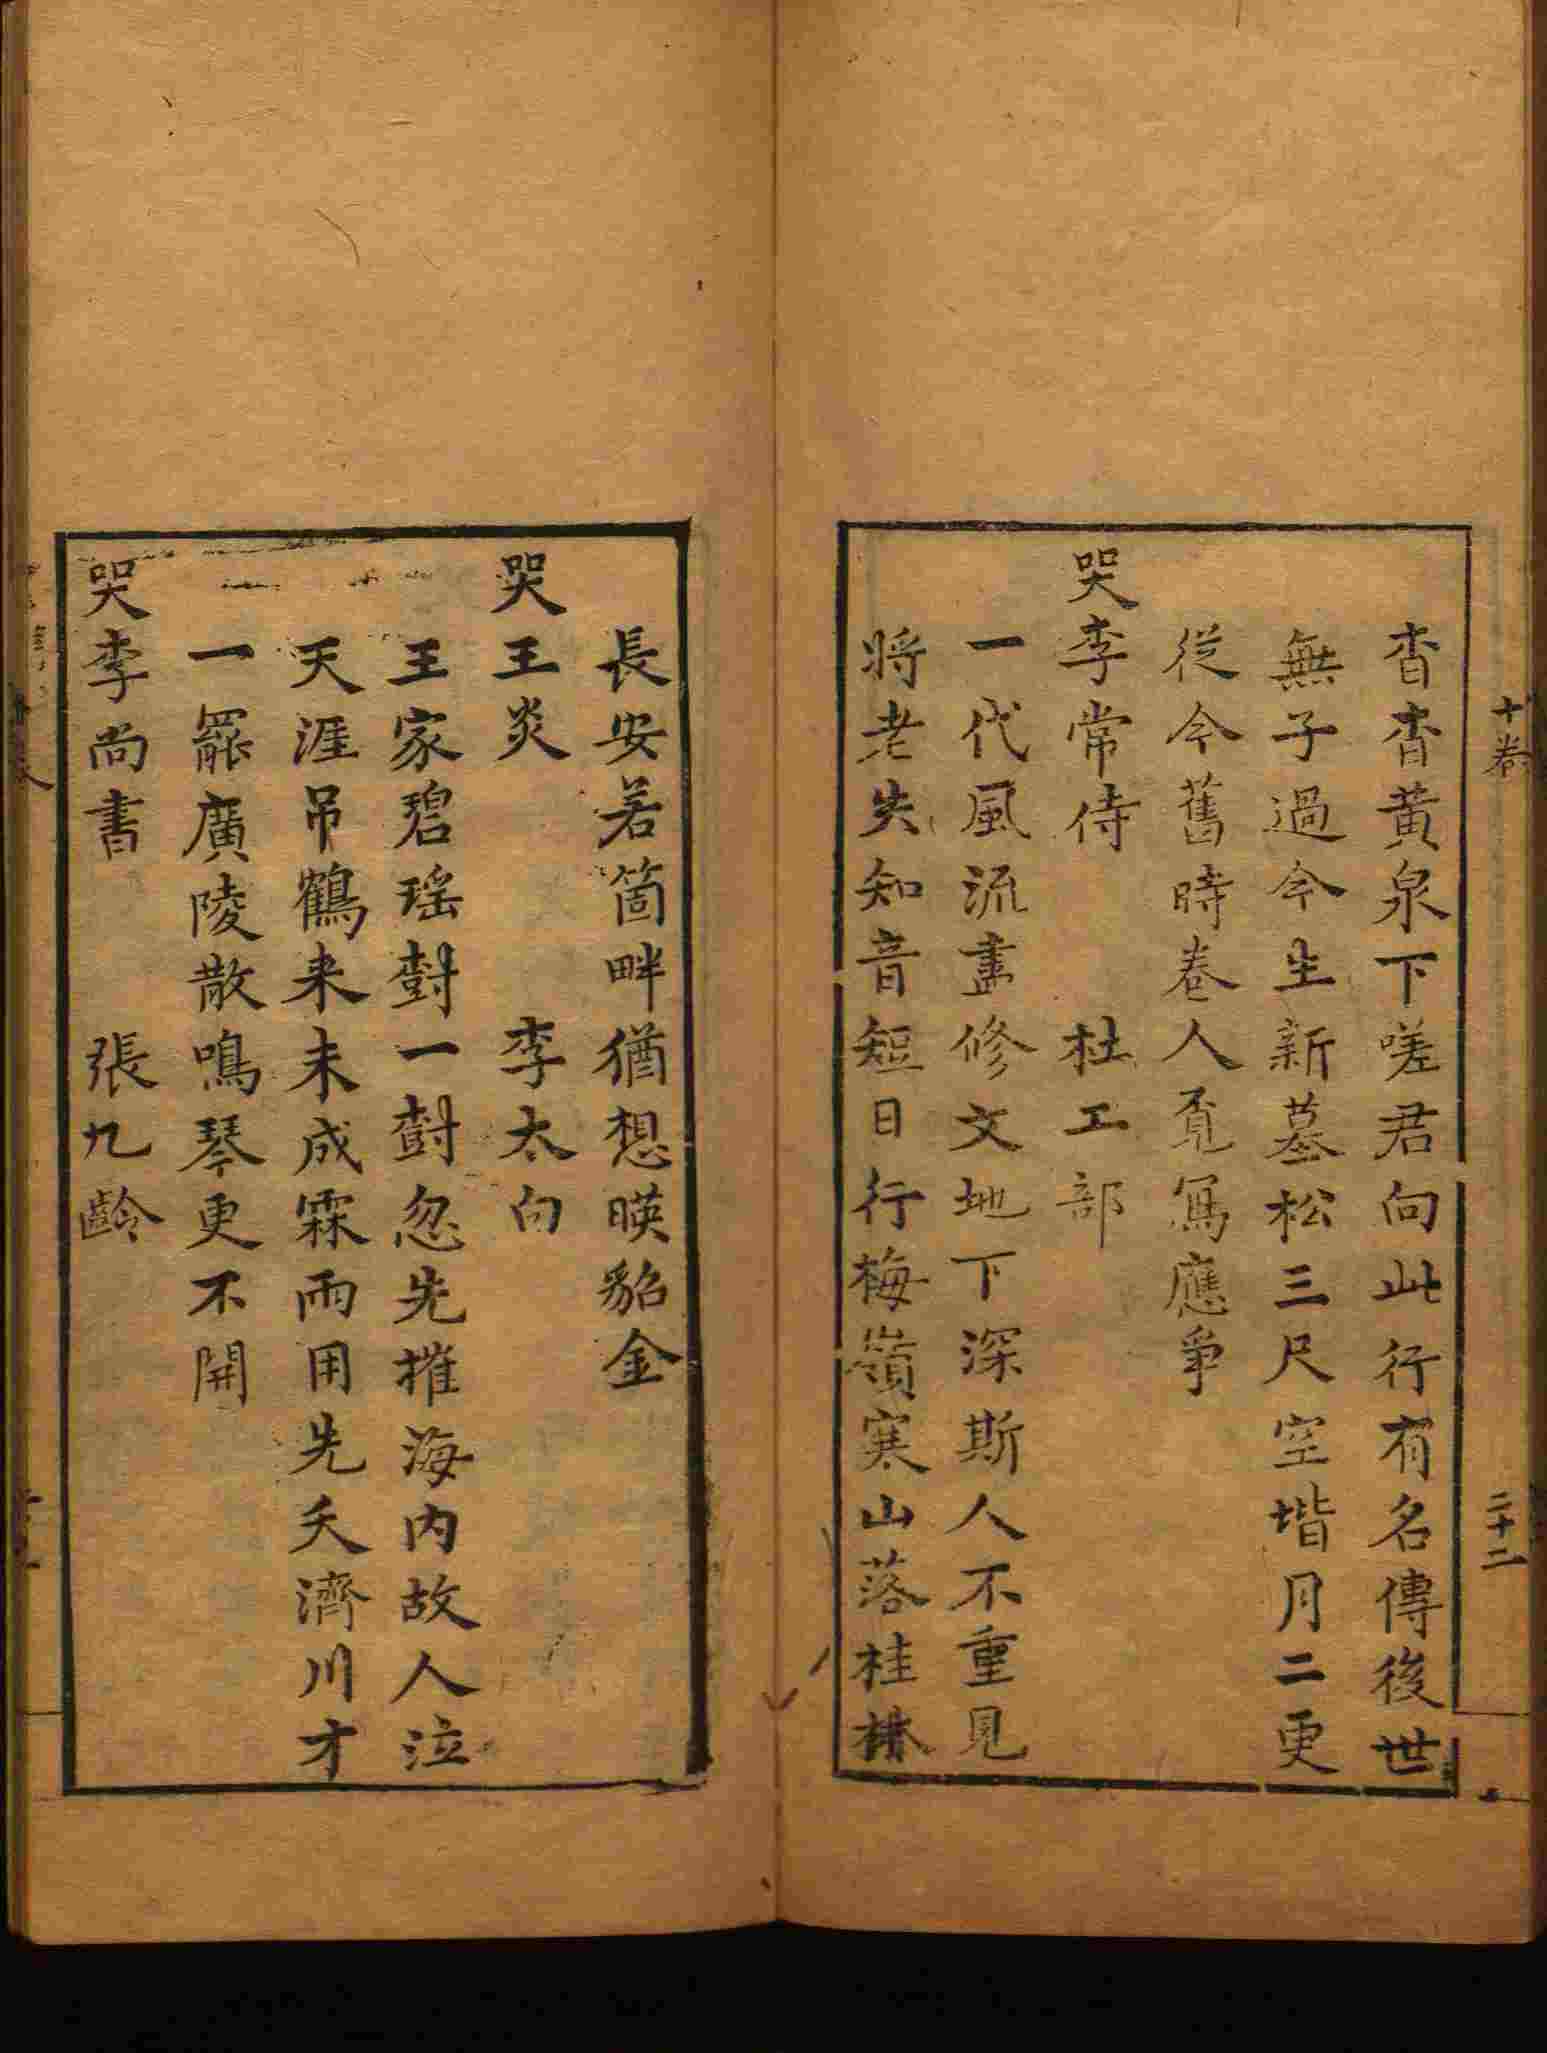 十卷
二十二
杳杳黄泉下嗟君向此行有名傳後世
無子過今生新墓松三尺空堦月二更
從今舊時卷人覔寫應爭
哭李常侍 杜工部
一代風流盡修文地下深斯人不重見
將老失知音短日行梅嶺寒山落桂林
長安若箇畔猶想暎貂金
哭王炎 李太白
王家碧瑶樹一樹忽先摧海内故人泣
天涯吊鶴来未成霖雨用先夭濟川才
一罷廣陵散鳴琴更不開
哭李尚書 張九齡